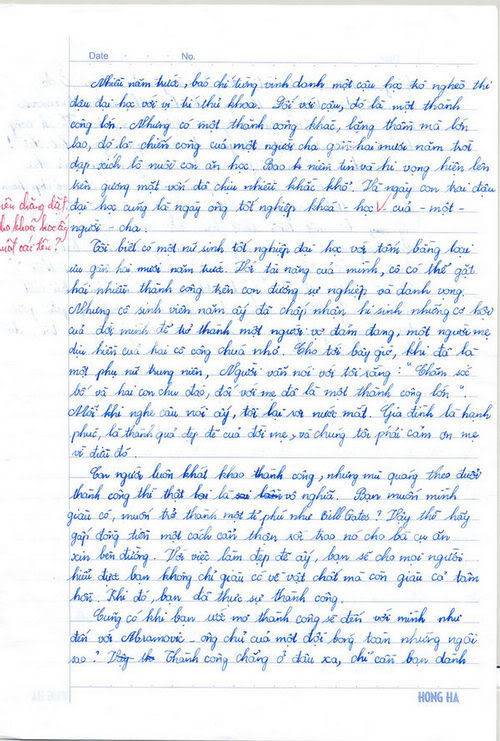 Date No.
Nhiều năm trước, báo chí từng vinh danh một cậu học trò nghèo thi
đậu đại học với vị trí thủ khoa. Đối với cậu, đó là một thành
công lớn. Nhưng có một thành công khác, lặng thầm mà lớn
lao, đó là chiến công của một người cha gần hai mươi năm trời
đạp xích lô nuôi con ăn học. Bao niềm tin và hi vọng hiện lên
trên gương mặt vốn đã chịu nhiều khắc khổ. Và ngày con trai đậu
đại học cũng là ngày ông tốt nghiệp khoá - học - của - một -
người - cha.
Tôi biết có một nữ sinh tốt nghiệp đại học với tấm bằng loại
ưu gần hai mươi năm trước. Với tài năng của mình, cô có thể gặt
hái nhiều thành công trên con đường sự nghiệp và danh vọng.
Nhưng cô sinh viên năm ấy đã chấp nhận hi sinh những cơ hội
của đời mình để trở thành một người vợ đảm đang, một người mẹ
dịu hiền của hai cô công chúa nhỏ. Cho tới bây giờ, khi đã là
một phụ nữ trung niên, Người vẫn nói với tôi rằng: "Chăm sóc
bố và hai con chu đáo, đối với mẹ đã là một thành công lớn".
Mỗi khi nghe câu nói ấy, tôi lại rơi nước mắt. Gia đình là hạnh
phúc, là thành quả đẹp đẽ của đời mẹ, và chúng tôi phải cảm ơn mẹ
vì điều đó.
Con người luôn khát khao thành công, nhưng mù quáng theo đuổi
thành công thì thật là vô nghĩa. Bạn muốn mình
giàu có, muốn trở thành một tỉ phú như Bill Gates? Vậy thì hãy
gấp đồng tiền một cách cẩn thận rồi trao nó cho bà cụ ăn
xin bên đường. Với việc làm đẹp đẽ ấy, bạn sẽ cho mọi người
hiểu được bạn không chỉ giàu có về vật chất mà còn giàu có tâm
hồn. Khi đó, bạn đã thực sự thành công.
Cũng có khi bạn ước mơ thành công sẽ đến với mình như
đến với Abramovic - ông chủ của một đội bóng toàn những ngôi
sao? Thành công chẳng ở đâu xa, chỉ cần bạn dành
HONG HA